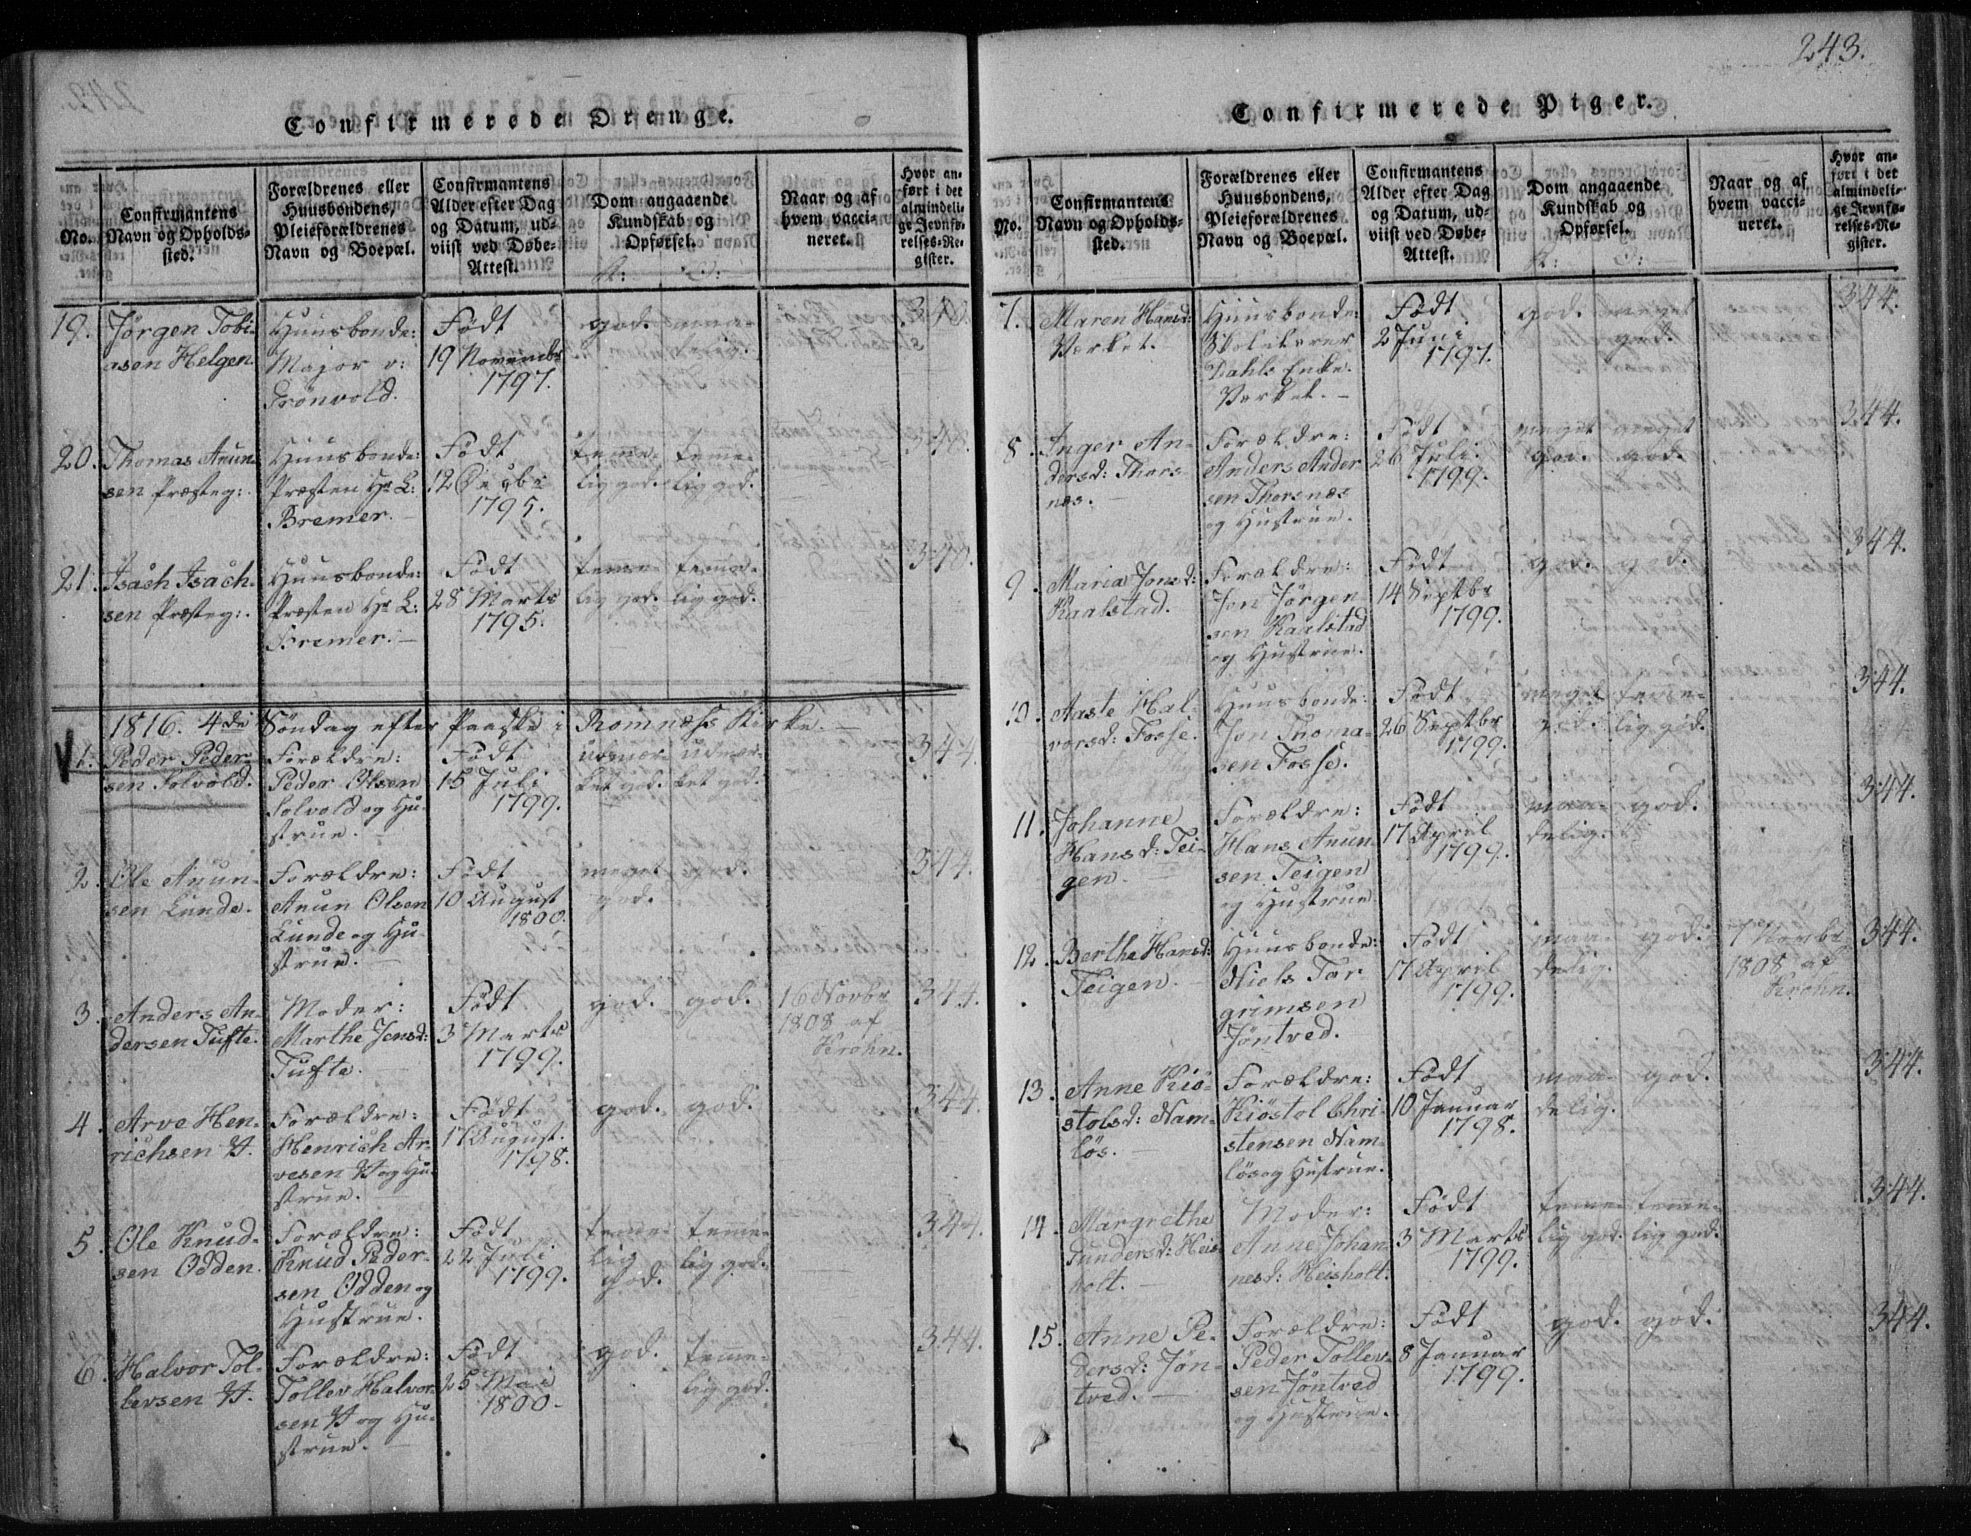 243.
Confirmerede Drenge.
No.
Confirmantens
Navn og Opholds-
sted.
Forældrenes eller
Huusbondens,
Pleieforældrenes
Navn og Boepæl.
Confirmantens
Alder efter Dag
og Datum, ud-
viist ved Døbe-
Attest.
Dom angaaende
Kundskab og
Opførsel.
Naar og af
hvem vacci-
neret.
Hvor an-
ført i det
almindeli-
ge Jevnfø-
relses-Re-
gister.
19. Jørgen Tobi-
asen Helgen.
Huusbonde:
Major v:
Grönvold.
Født
19 Novembr
1797.
god.
340.
20. Thomas Anun-
sen Præsteg:
Huusbonde:
Præsten Hr L:
Bremer.
Født
12
1795.
teme-
lig god.
teme-
lig god.
340.
21. Isach Isach-
sen Præsteg:
Huusbonde:
Præsten Hr L:
Bremer.
Født
28 Marts
1795.
teme-
lig god.
teme-
lig god.
340.
1816. 4de Söndag efter Paaske i Romnæss Kirke.
1. Peder Peder-
sen Solvold.
Forældre:
Peder Olsen
Solvold og Hu-
strue.
Født
15 Juli
1799.
udmær-
ket god.
udmær-
ket god.
344.
2. Ole Anun-
sen Lunde.
Forældre:
Anun Olsen
Lunde og Hu-
strue.
Født
10 August
1800.
meget
god.
god.
344.
3. Anders An-
dersen Tufte.
Moder:
Marthe Jensd:
Tufte.
Født
3 Marts
1799.
god.
god.
16 Novbr
1808 af
Krohn.
344.
4. Arve Hen-
richsen V.
Forældre:
Henrich Ar-
vesen V og Hu-
strue.
Født
17 August
1798.
god.
god.
344.
5. Ole Knud-
sen Odden.
Forældre:
Knud Peder-
sen Odden og
Hustrue.
Født
22 Juli
1799.
teme-
lig
god.
teme-
lig god.
344.
6. Halvor Tol-
levsen V.
Forældre:
Tollev Halvor-
sen V og Hu-
strue.
Født
25 Mai
1800.
god.
teme-
lig god.
344.
Confirmerede Piger.
No.
Confirmantens
Navn og Opholds-
sted.
Forældrenes eller
Huusbondens,
Pleieforældrenes
Navn og Boepæl.
Confirmantens
Alder efter Dag
og Datum, ud-
viist ved Døbe-
Attest.
Dom angaaende
Kundskab og
Opførsel.
Naar og af
hvem vacci-
neret.
Hvor an-
ført i det
almindeli-
ge Jevnfø-
relses-Re-
gister.
7. Maren Hansd:
Verket.
Huusbonde
Dahls Enke
Verket.
Født
2 Juni
1797.
god.
meget
god.
344.
8. Inger An-
dersd: Thors-
næs.
Forældre:
Anders Ander
sen Thorsnæs
og Hustrue.
Født
26 Juli
1799.
meget
god.
meget
god.
344.
9. Maria Jonsd:
Kaalstad.
Forældre:
Jon Jørgen-
sen Kaalstad
og Hustrue.
Født
14 Septbr
1799.
god.
god.
344.
10. Aaste Hal-
vorsd: Fosse.
Huusbonde:
Jon Thoma-
sen Fosse.
Født
26 Septbr
1799.
meget
god.
teme-
lig god.
344.
11. Johanne
Hansd: Tei-
gen.
Forældre:
Hans Anun-
sen Teigen
og Hustrue
Født
17 April
1799.
maa-
delig.
god.
344.
12. Berthe Hansd:
Teigen.
Huusbonde:
Niels Tar-
grimsen
Jöntved.
Født
17 April
1799.
maa-
delig.
god.
7 Novbr
1808 af
Krohn.
344.
13. Anne Kiö-
stolsd: Nam-
løs.
Forældre:
Kiöstol Chri-
stensen Nam-
løs og Hustrue.
Født
10 Januar
1798.
maa-
delig.
god.
344.
14. Margrethe
Gundersd: Heis-
holt.
Moder:
Anne Johan
nesd: Heisholt.
Født
3 Marts
1799.
teme-
lig god.
teme-
lig god.
344.
15. Anne Pe-
dersd: Jön-
tved.
Forældre:
Peder Tollev-
sen Jöntved
og Hustrue.
Født
8 Januar
1799.
god.
god.
344.